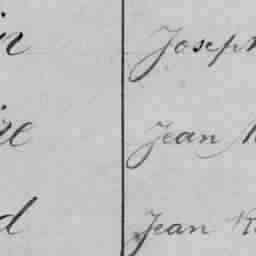 in Joseph
re Jean
d Jean